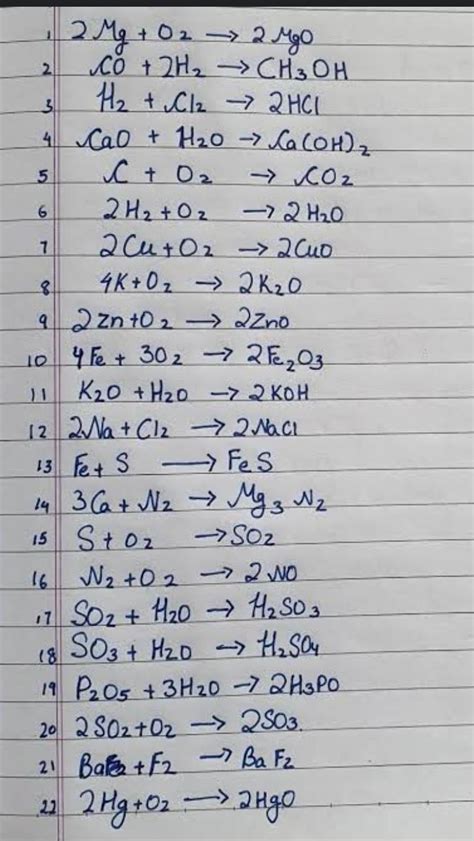 1 2Mg + O2 → 2MgO
2 CO + 2H2 → CH3OH
3 H2 + Cl2 → 2HCl
4 CaO + H2O → Ca(OH)2
5 C + O2 → CO2
6 2H2 + O2 → 2H2O
7 2Cu + O2 → 2CuO
8 4K + O2 → 2K2O
9 2Zn + O2 → 2ZnO
10 4Fe + 3O2 → 2Fe2O3
11 K2O + H2O → 2KOH
12 2Na + Cl2 → 2NaCl
13 Fe + S → FeS
14 3Ca + N2 → Mg3N2
15 S + O2 → SO2
16 N2 + O2 → 2NO
17 SO2 + H2O → H2SO3
18 SO3 + H2O → H2SO4
19 P2O5 + 3H2O → 2H3PO
20 2SO2 + O2 → 2SO3.
21 Ba + F2 → BaF2
22 2Hg + O2 → 2HgO